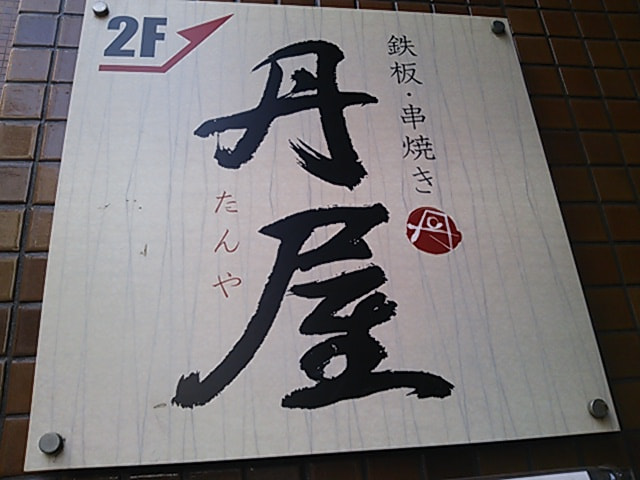 2F
鉄板・串焼き
丹
丹屋
たんや